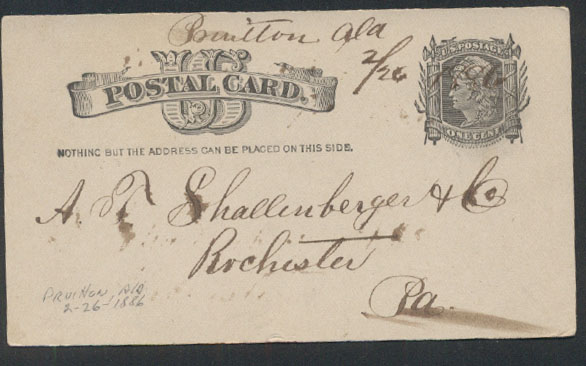 Pruitton Ala
2/26
U.S. POSTAGE
US
POSTAL CARD.
ONE CENT
NOTHING BUT THE ADDRESS CAN BE PLACED ON THIS SIDE.
A. T. Shallenberger & Co
Rochester
Pa.
PRUITTON, Ala
2-26-1886